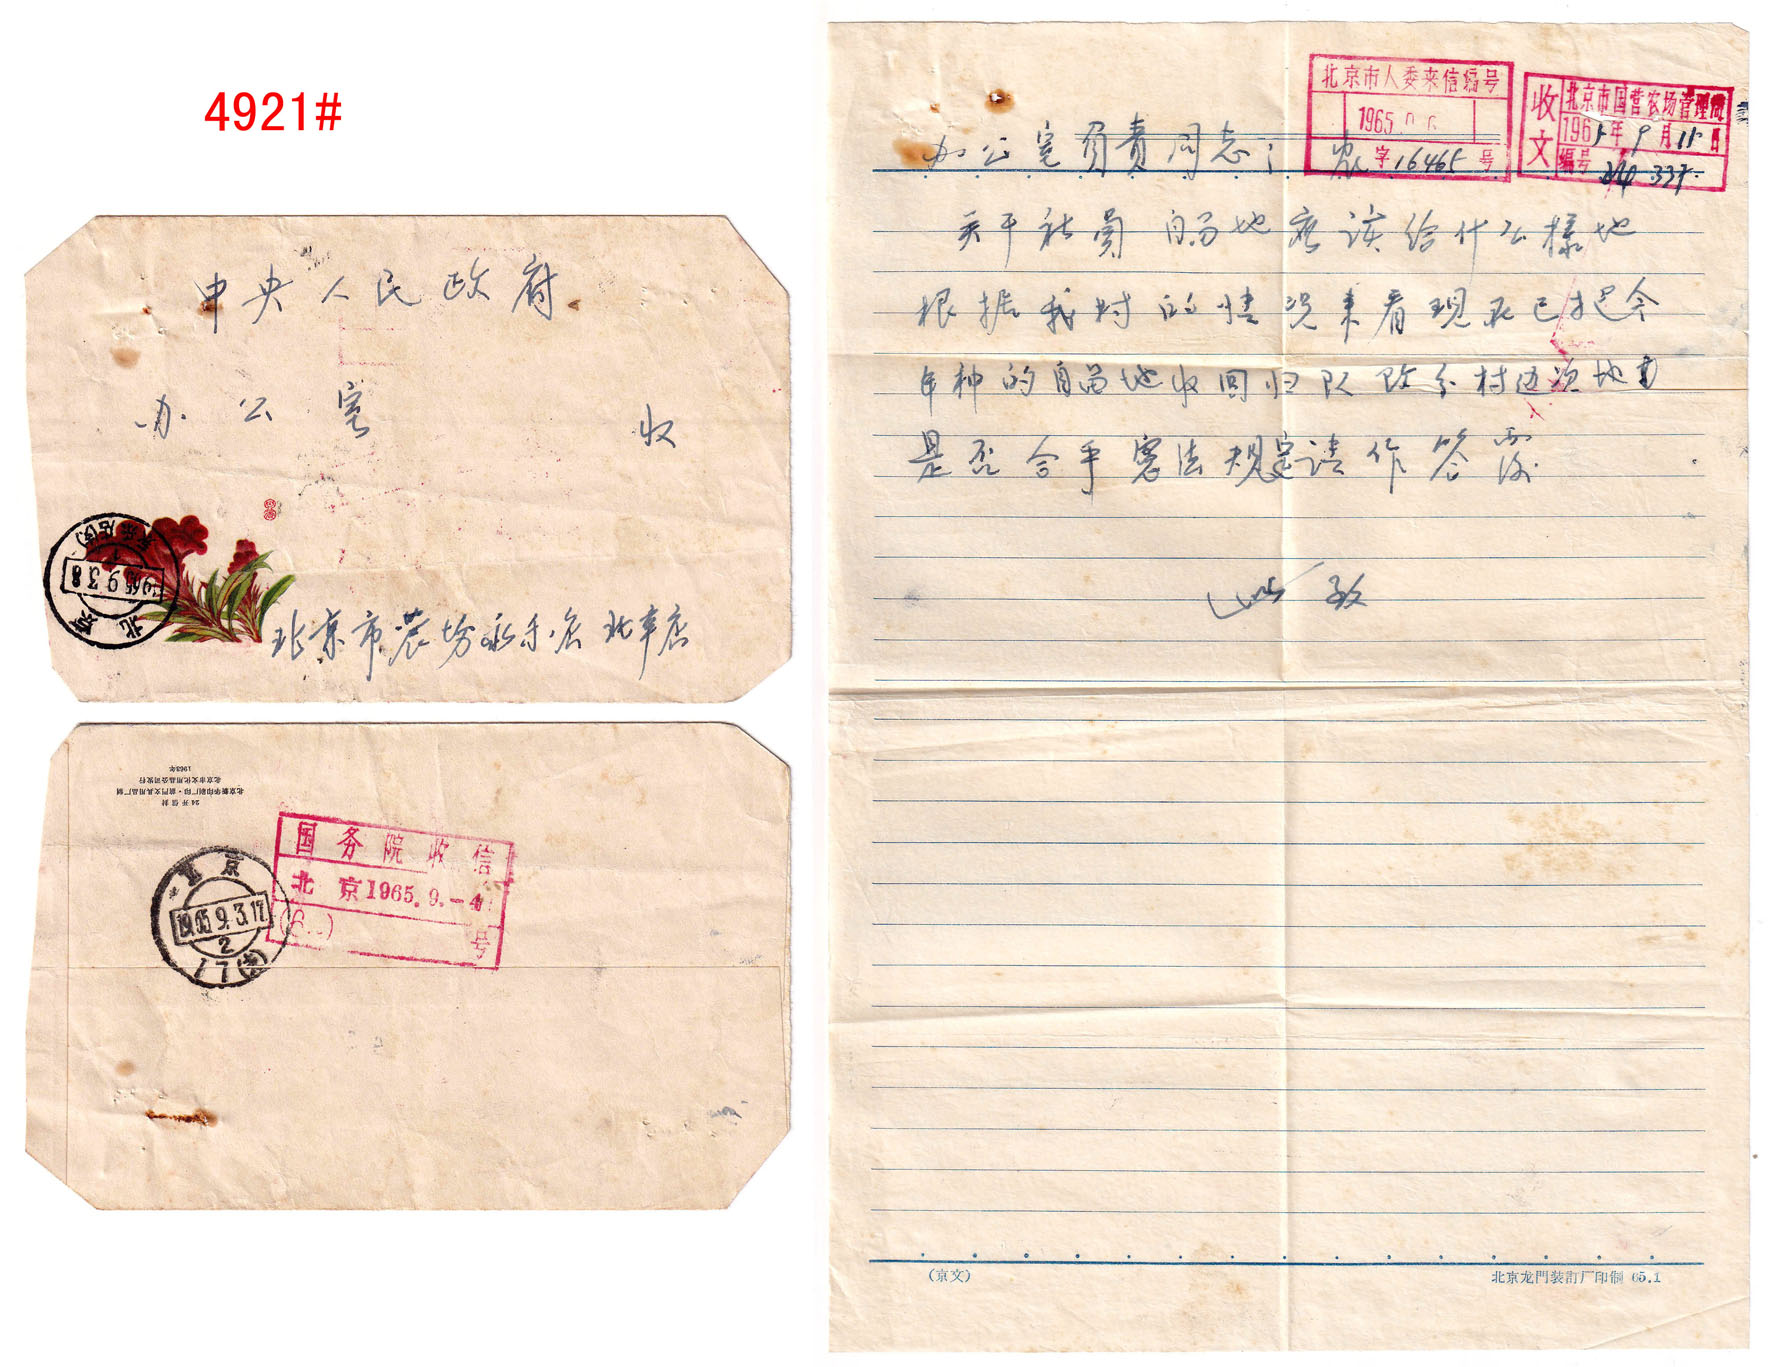 4921#
中央人民政府
办公室 收
北京市农场永乐店北辛店
北京
1965.9.3.8
24开信封
北京新华印刷厂印·前門文具用品厂制
北京市文化用品公司发行
1963年
国务院收信
北京1965.9.-4
号
北京
1965.9.3.17
2
17(支)
北京市人委来信编号
1965
农字16465号
收文
北京市国营农场管理局
1965年9月15日
编号 337
办公室负责同志：
关于社员自留地应该给什么樣地
根据我村的情况来看现在已把今
年种的自留地收回归队改分村边次地
是否合乎宪法规定请作答覆
此致
(京文)
北京龙門装訂厂印制 65.1